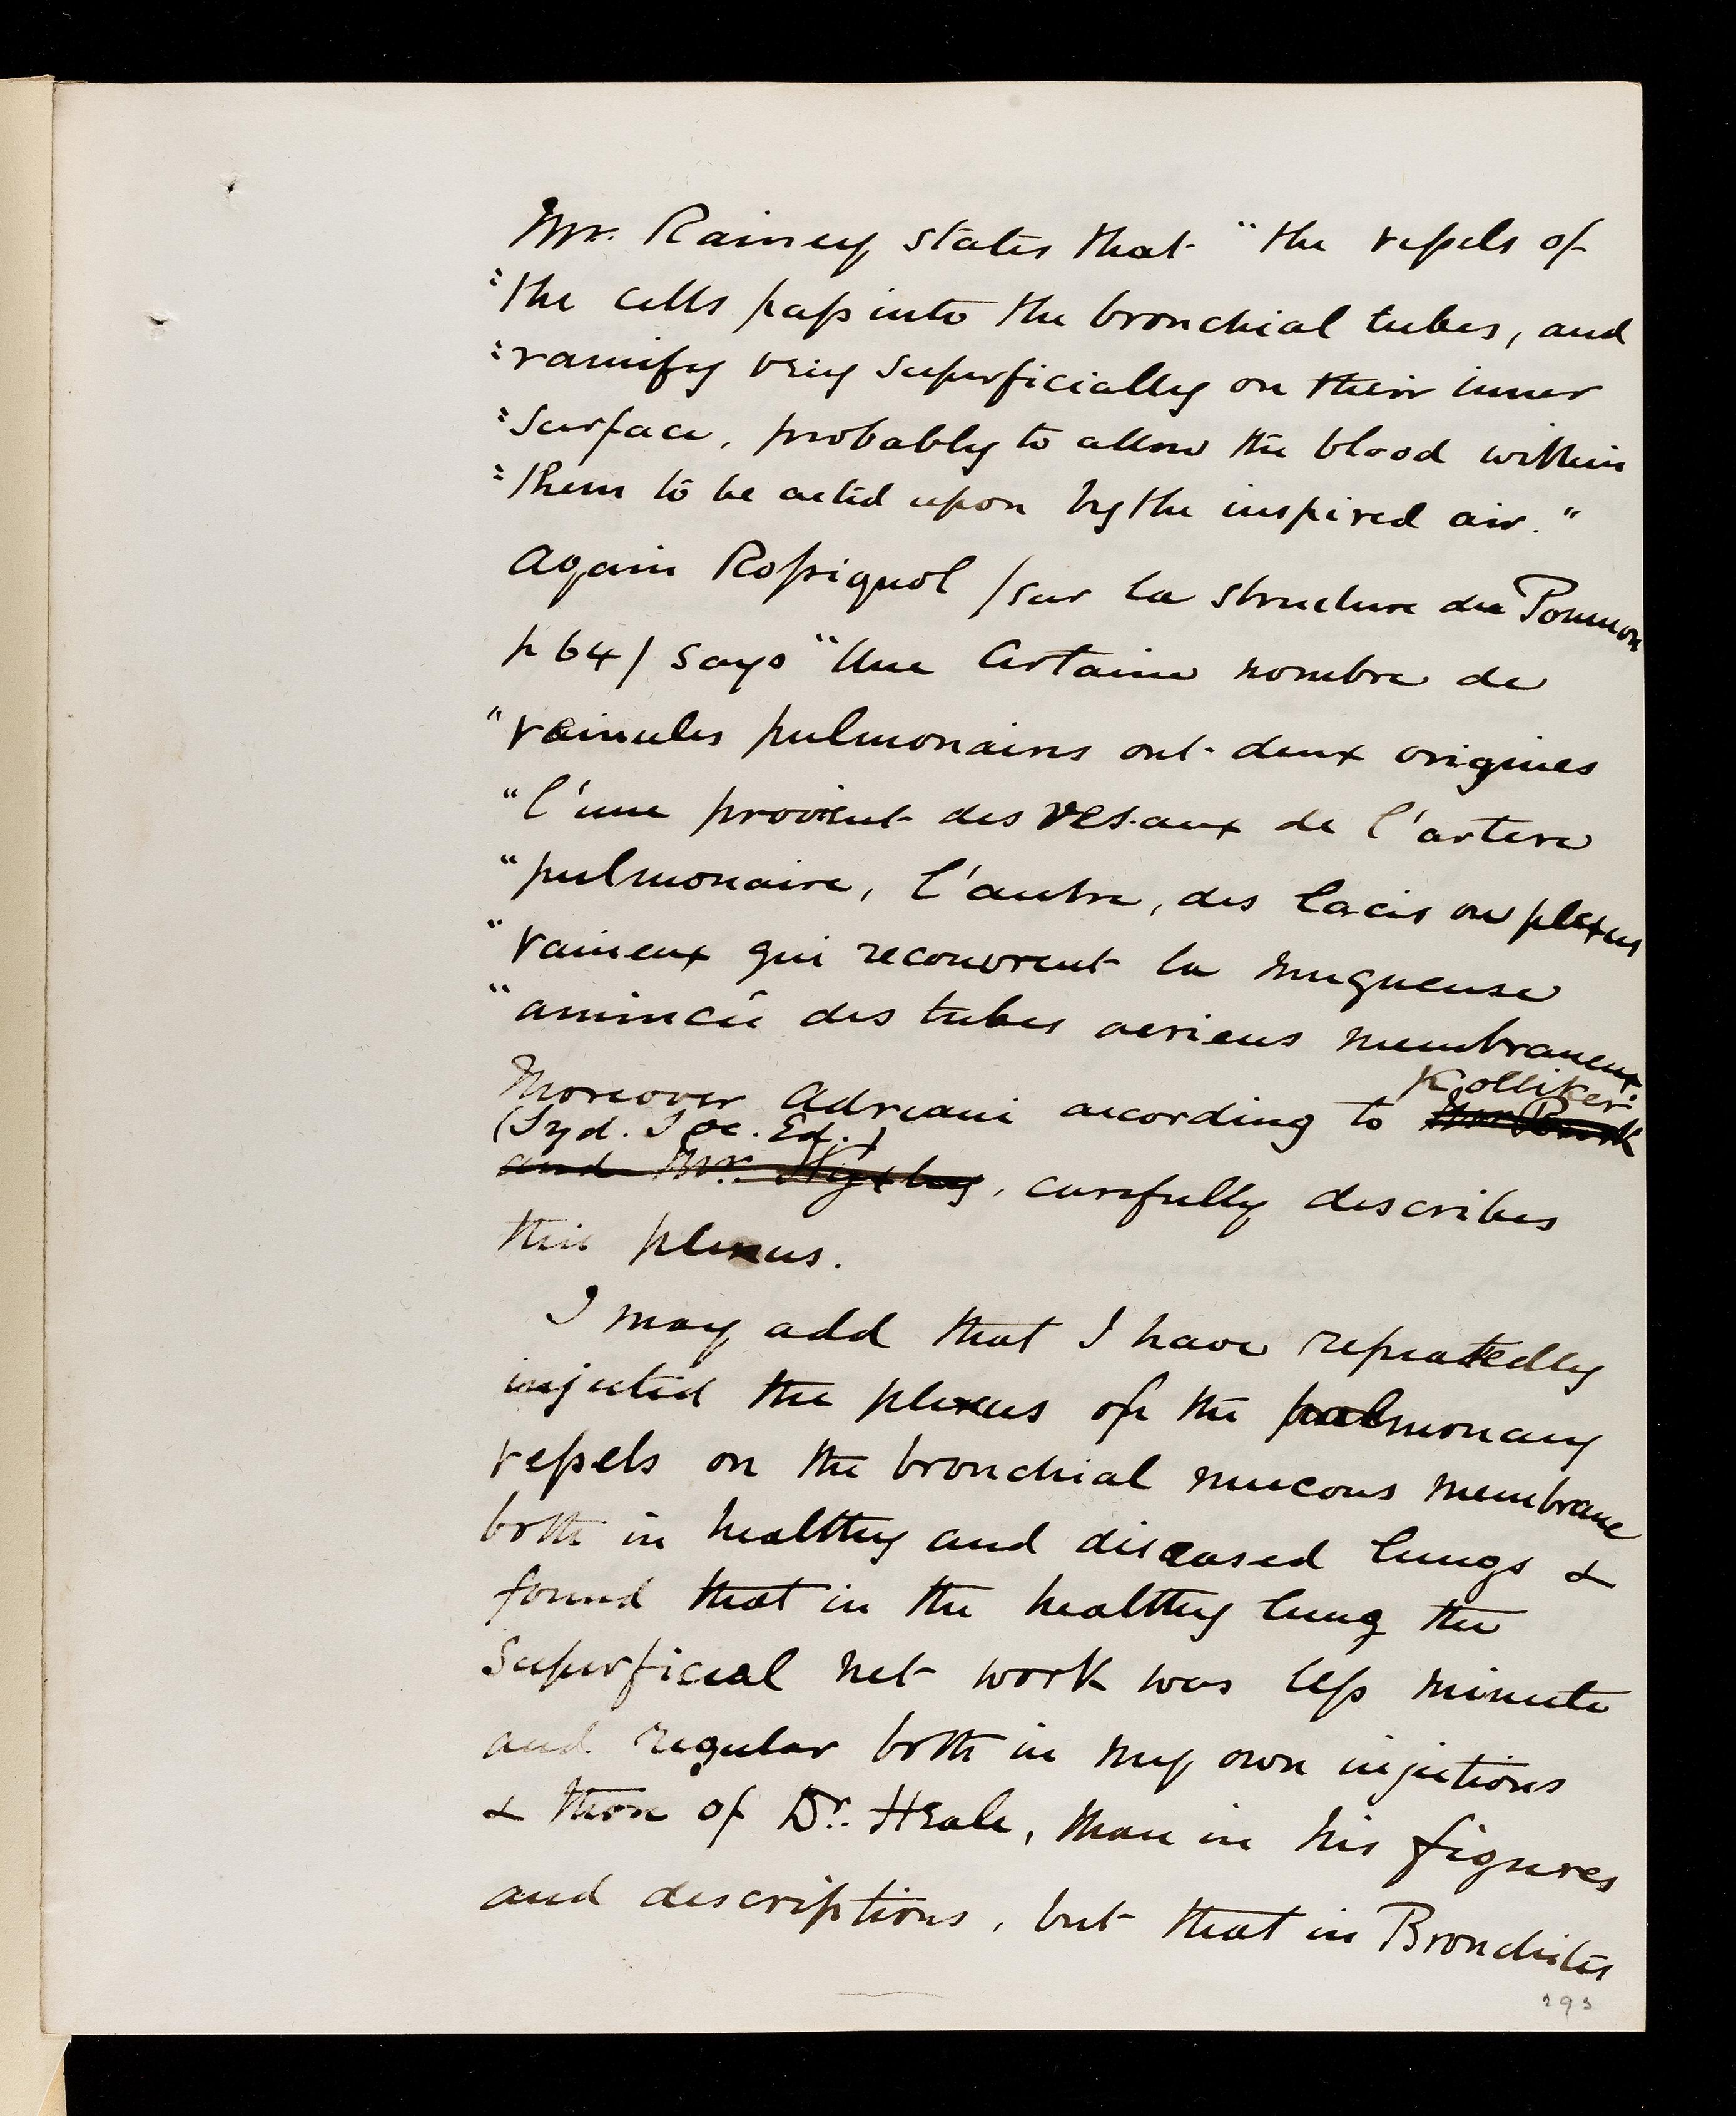 Mr. Rainey states that "the vessels of
"the cells pass into the bronchial tubes, and
"ramify very superficially on their inner
"surface, probably to allow the blood within
"them to be acted upon by the inspired air."
Again Rossignol / sur la structure du Poumon
p 64 / says "Une Certaine nombre de
"vainules pulmonaires ont deux origines
"l'une provient des resaux de l'artere
"pulmonaire, l'autre, des lacis ou plexus
"vaineux qui recouvrent la muqueuse
"amincie des tubes aeriens membraneux
Kolliker
Moreover Adriani according to
(Syd. Soc. Ed.)
and Mr. Huxley, carefully describes
this plexus.
I may add that I have repeatedly
injected the plexus of the pulmonary
vessels on the bronchial mucous membrane
both in healthy and diseased lungs &
found that in the healthy lung the
Superficial net work was less minute
and regular both in my own injections
& those of Dr. Heale, than in his figures
and descriptions, but that in Bronchitis
293